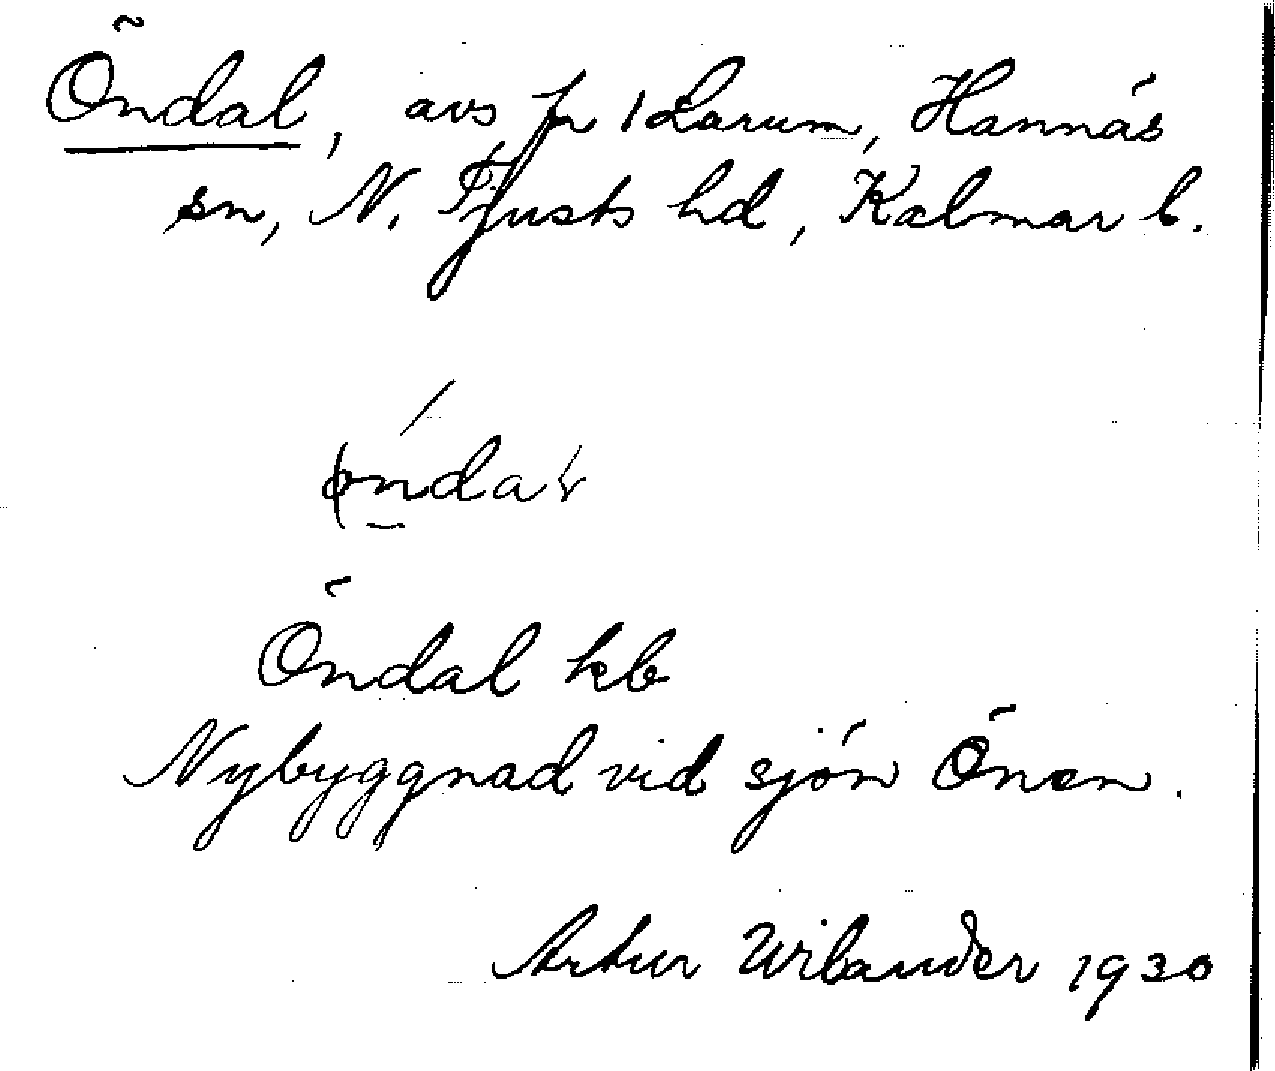 Öndal, avs fr 1 Larum, Hannäs
sn, N. Tjusts hd, Kalmar l.
Öndal kb
Nybyggnad vid sjön Önen.
Artur Wilander 1930